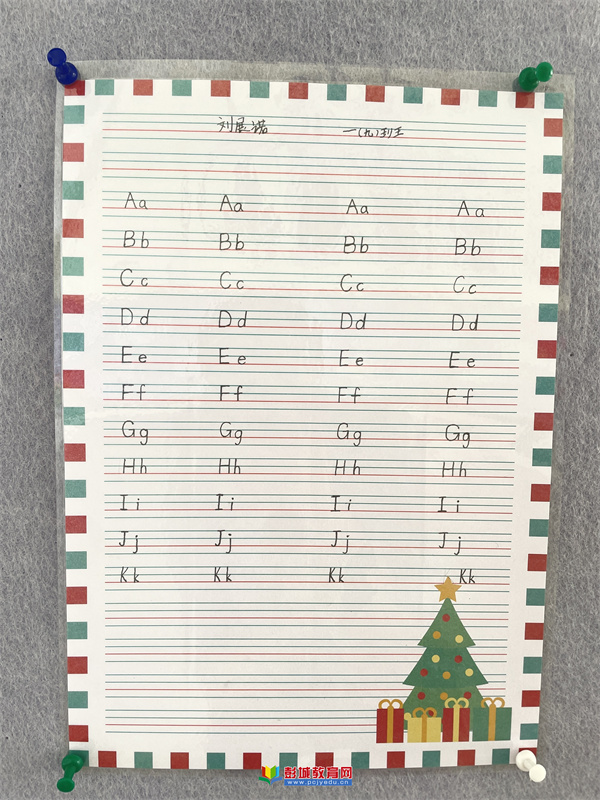 刘展诺 一(九)班
Aa Aa Aa Aa
Bb Bb Bb Bb
Cc Cc Cc Cc
Dd Dd Dd Dd
Ee Ee Ee Ee
Ff Ff Ff Ff
Gg Gg Gg Gg
Hh Hh Hh Hh
Ii Ii Ii Ii
Jj Jj Jj Jj
Kk Kk Kk Kk
彭城教育网
www.pcjyedu.cn